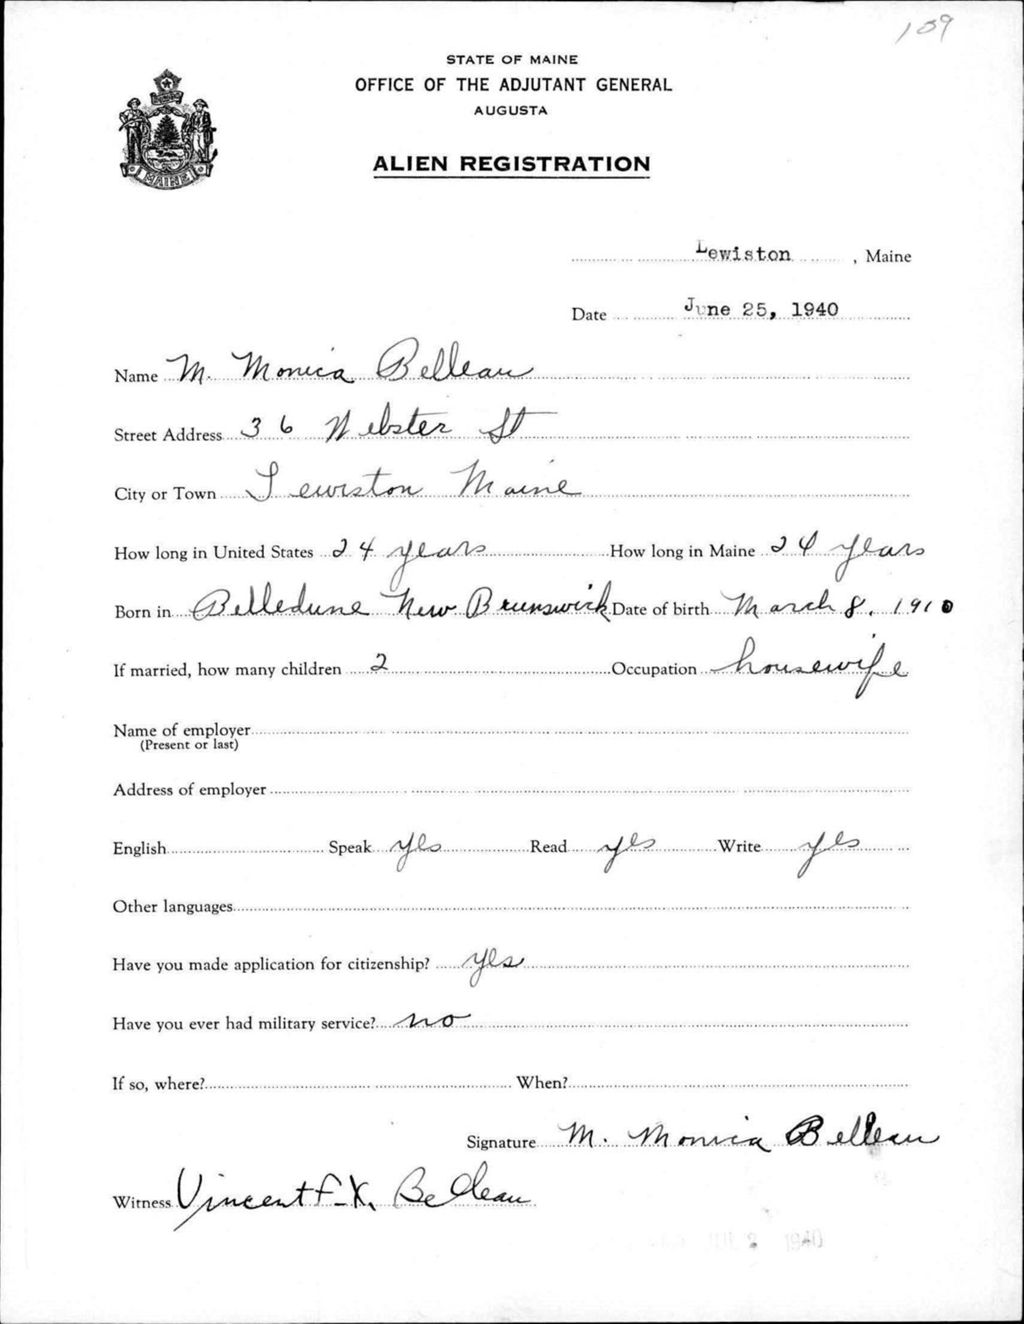 109
STATE OF MAINE
OFFICE OF THE ADJUTANT GENERAL
AUGUSTA
MAINE
ALIEN REGISTRATION
Lewiston, Maine
Date June 25, 1940
Name M. Monica Belleau
Street Address 36 Webster St
City or Town Lewiston Maine
How long in United States 24 years How long in Maine 24 years
Born in Belledune New Brunswick Date of birth March 8, 1910
If married, how many children 2 Occupation housewife
Name of employer
(Present or last)
Address of employer
English Speak yes Read yes Write yes
Other languages
Have you made application for citizenship? yes
Have you ever had military service? no
If so, where? When?
Signature M. Monica Belleau
Witness Vincent F-X. Belleau
2 1940